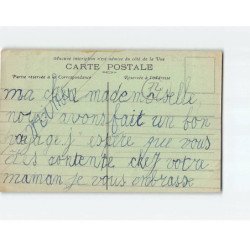 Aucune inscription n'est admise du côté de la Vue
CARTE POSTALE
Partie réservée à la Correspondance Réservée à l'Adresse
ma chère mademoiselle,
nous avons fait un bon
voyage j'espère que vous
etes contente chez votre
maman je vous embrasse